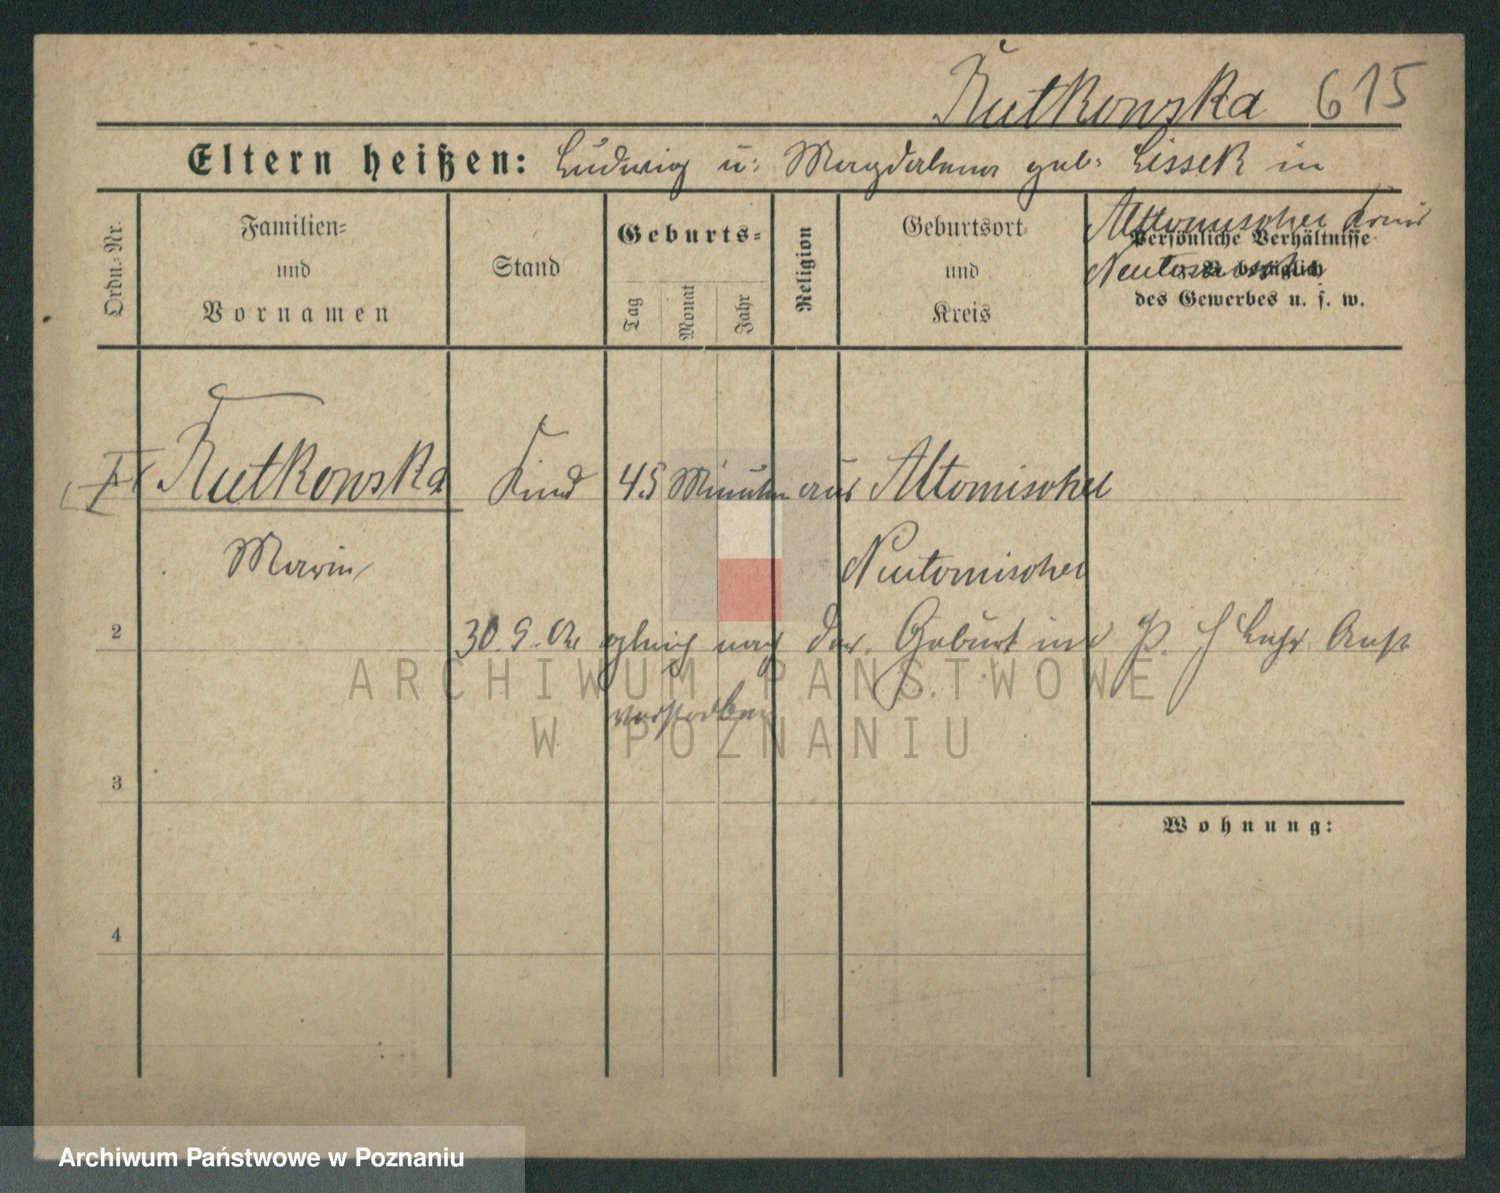 Rutkowska 615
Eltern heißen: Ludwig u: Magdalena geb: Lissek in
Alttomischel Kreis
Neutomischel
Ordn.-Nr.
Familien-
und
Vornamen
Stand
Geburts-
Tag
Monat
Jahr
Religion
Geburtsort
und
Kreis
Persönliche Verhältnisse
bezüglich
des Gewerbes u. s. w.
Rutkowska Kind 45 Minuten aus Altomischel
Marie Neutomischel
2 30. 9. 02 gleich nach der Geburt in d P. H
verstorben
3
Wohnung:
4
ARCHIWUM PAŃSTWOWE
W POZNANIU
Archiwum Państwowe w Poznaniu